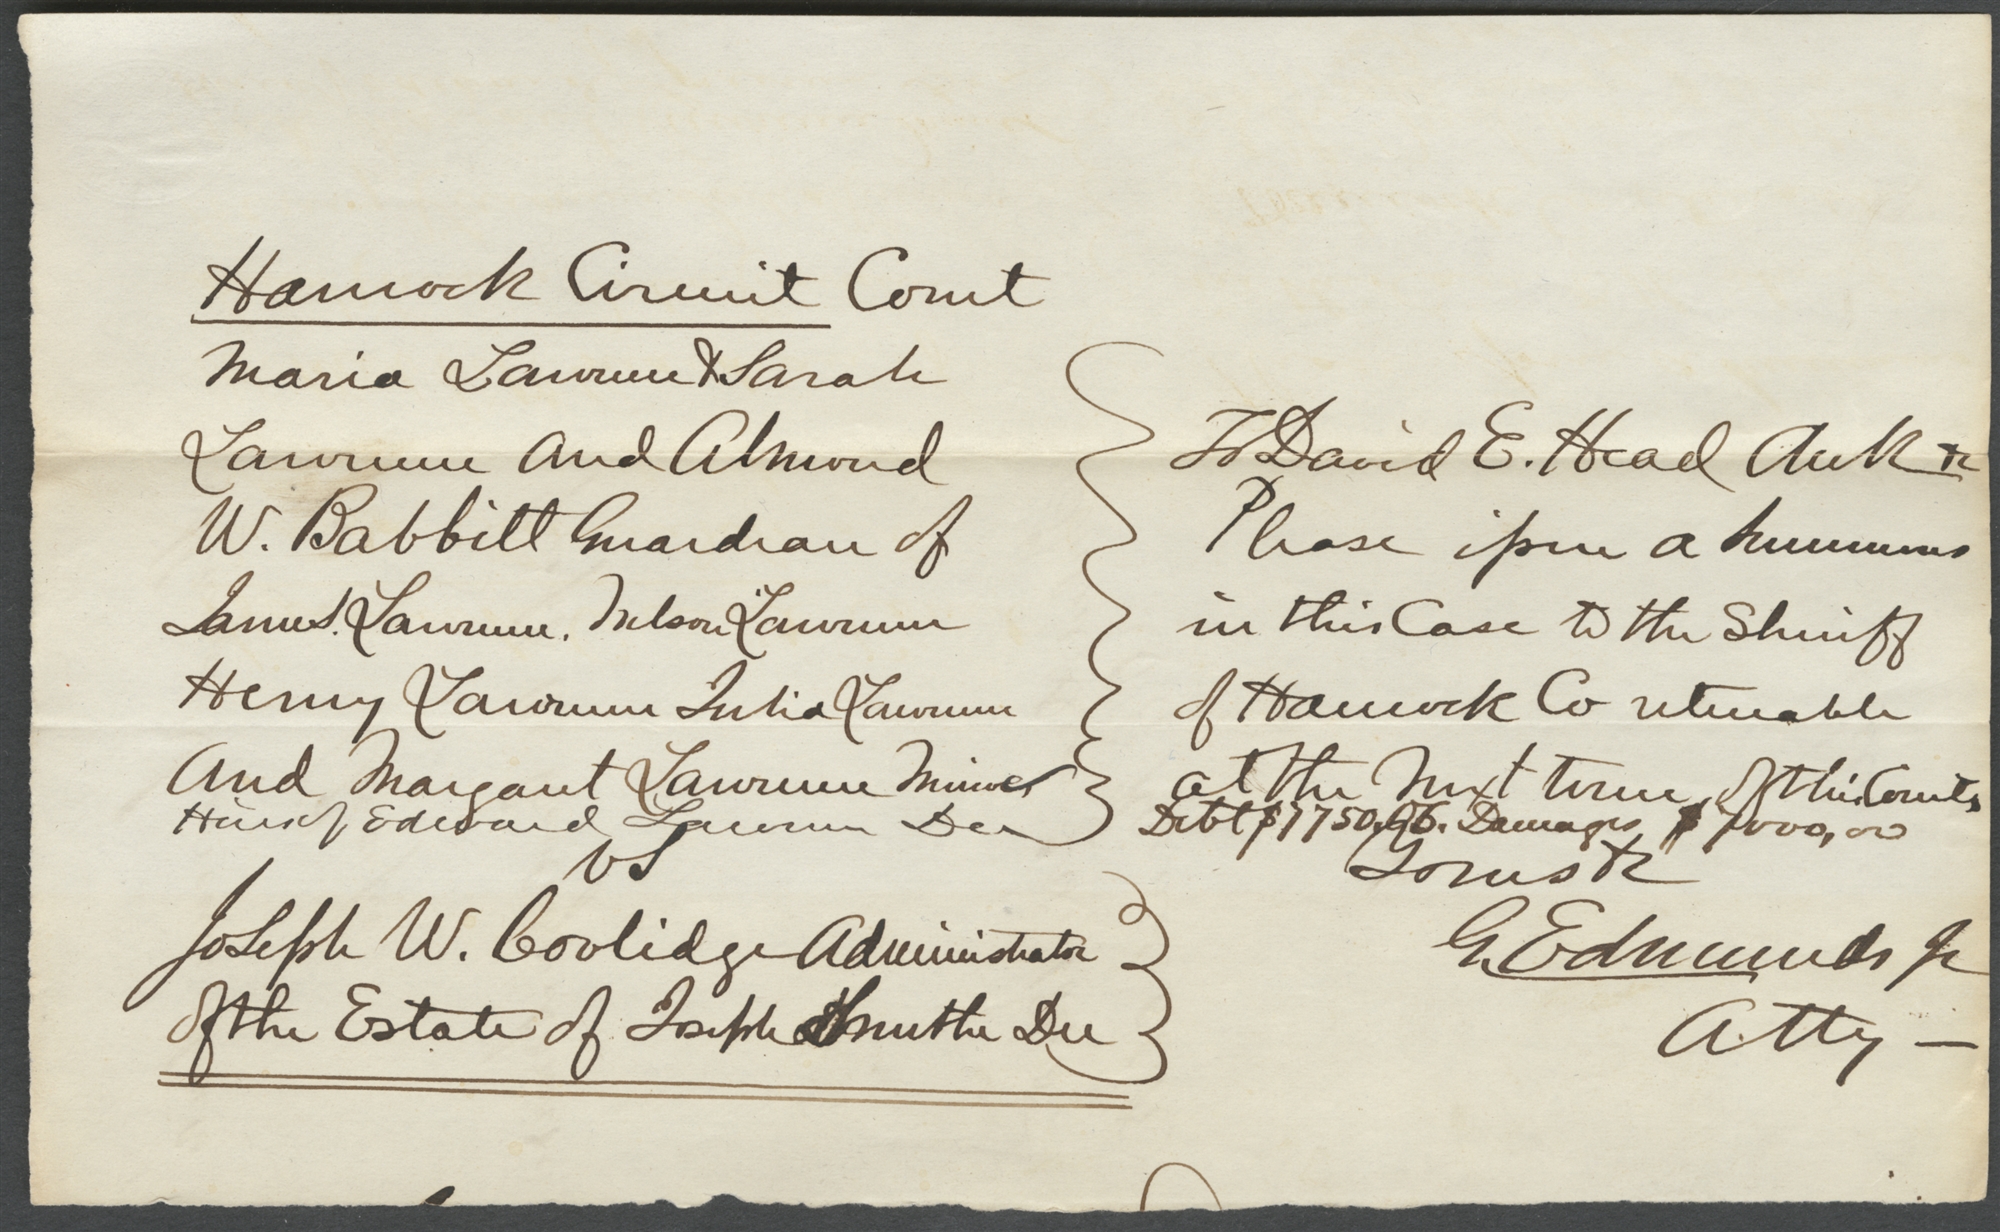 Hancock Circuit Court
Maria Lawrence & Sarah
Lawrence and Almond
W. Babbitt Guardian of
James Lawrence, Nelson Lawrence
Henry Lawrence Julia Lawrence
And Margaret Lawrence Minor
Heirs of Edward Lawrence Dec
vs
Joseph W. Coolidge Administrator
of the Estate of Joseph Smith Dec
To David E. Head Clerk &c
Please issue a summons
in this Case to the Sheriff
of Hancock Co returnable
at the Next term of this Court
Debt $7750,96. Damages $7000,00
Yours &c
G. Edmunds Jr
Atty —